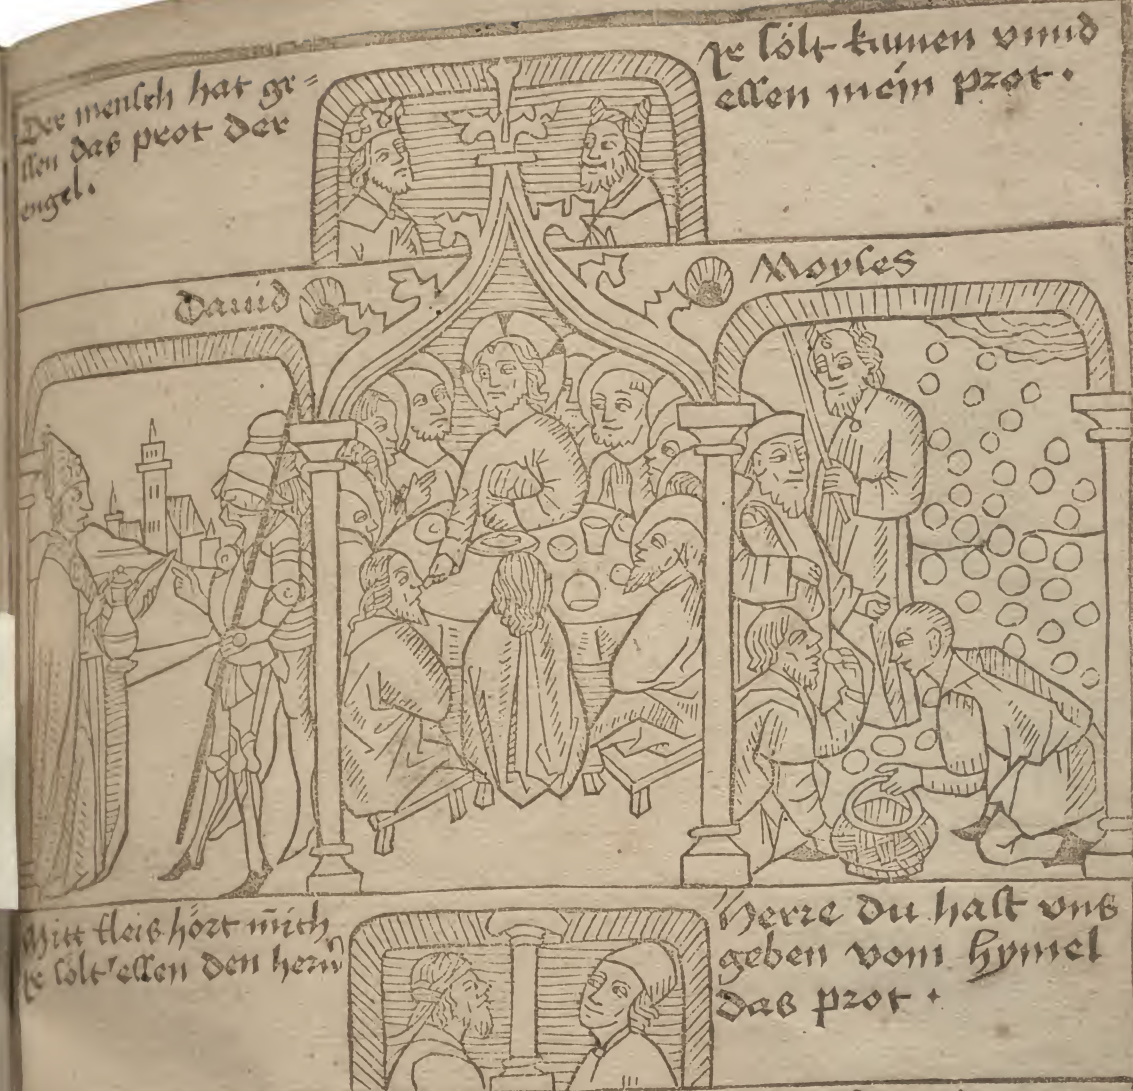 Der mensch hat ge=
ssen das prot der
engel.
Ir sölt kumen vnnd
essen mein prot.
Dauid
Moyses
Mitt fleis hört mich
ir sölt essen den hernn
Herre du hast vns
geben vom hymel
das prot.